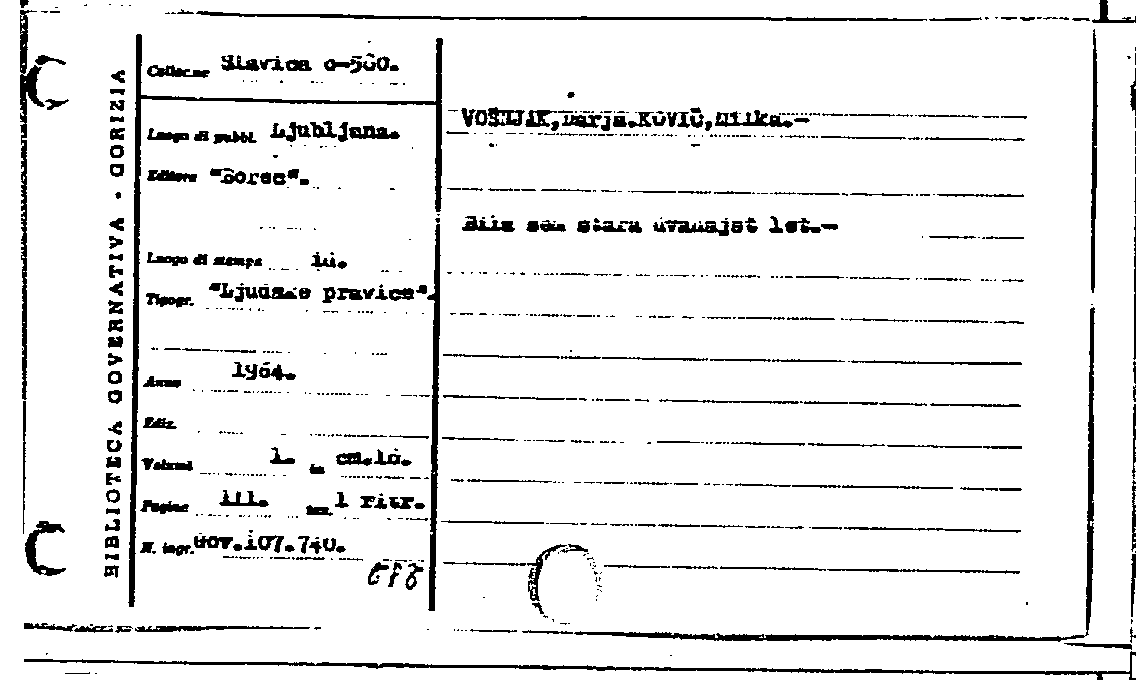 BIBLIOTECA GOVERNATIVA - GORIZIA
Collocaz Slavica 0-580.
Luogo di pubbl. Ljubljana.
Editore "Borec".
Luogo di stampa
Tipogr. "Ljudske pravice".
Anno 1964.
Ediz.
Volumi 1. in cm.
Pagine tav. 1 ritr.
N. ingr. Gov.107.740.
VOŠNJAK, Darja. KOVIČ, Milka.-
Bila sem stara dvanajst let.-